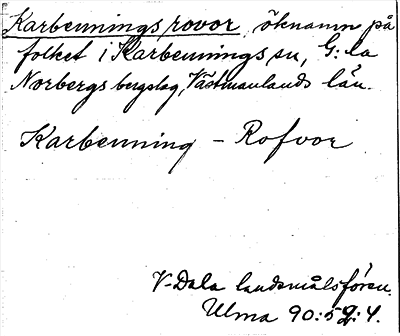 Karbenningsrovor, öknamn på
folket i Karbennings sn, G:la
Norbergs bergslag, Västmanlands län.
Karbenning - Rofvor
V-Dala landsmålsfören.
Ulma 90:52:4.